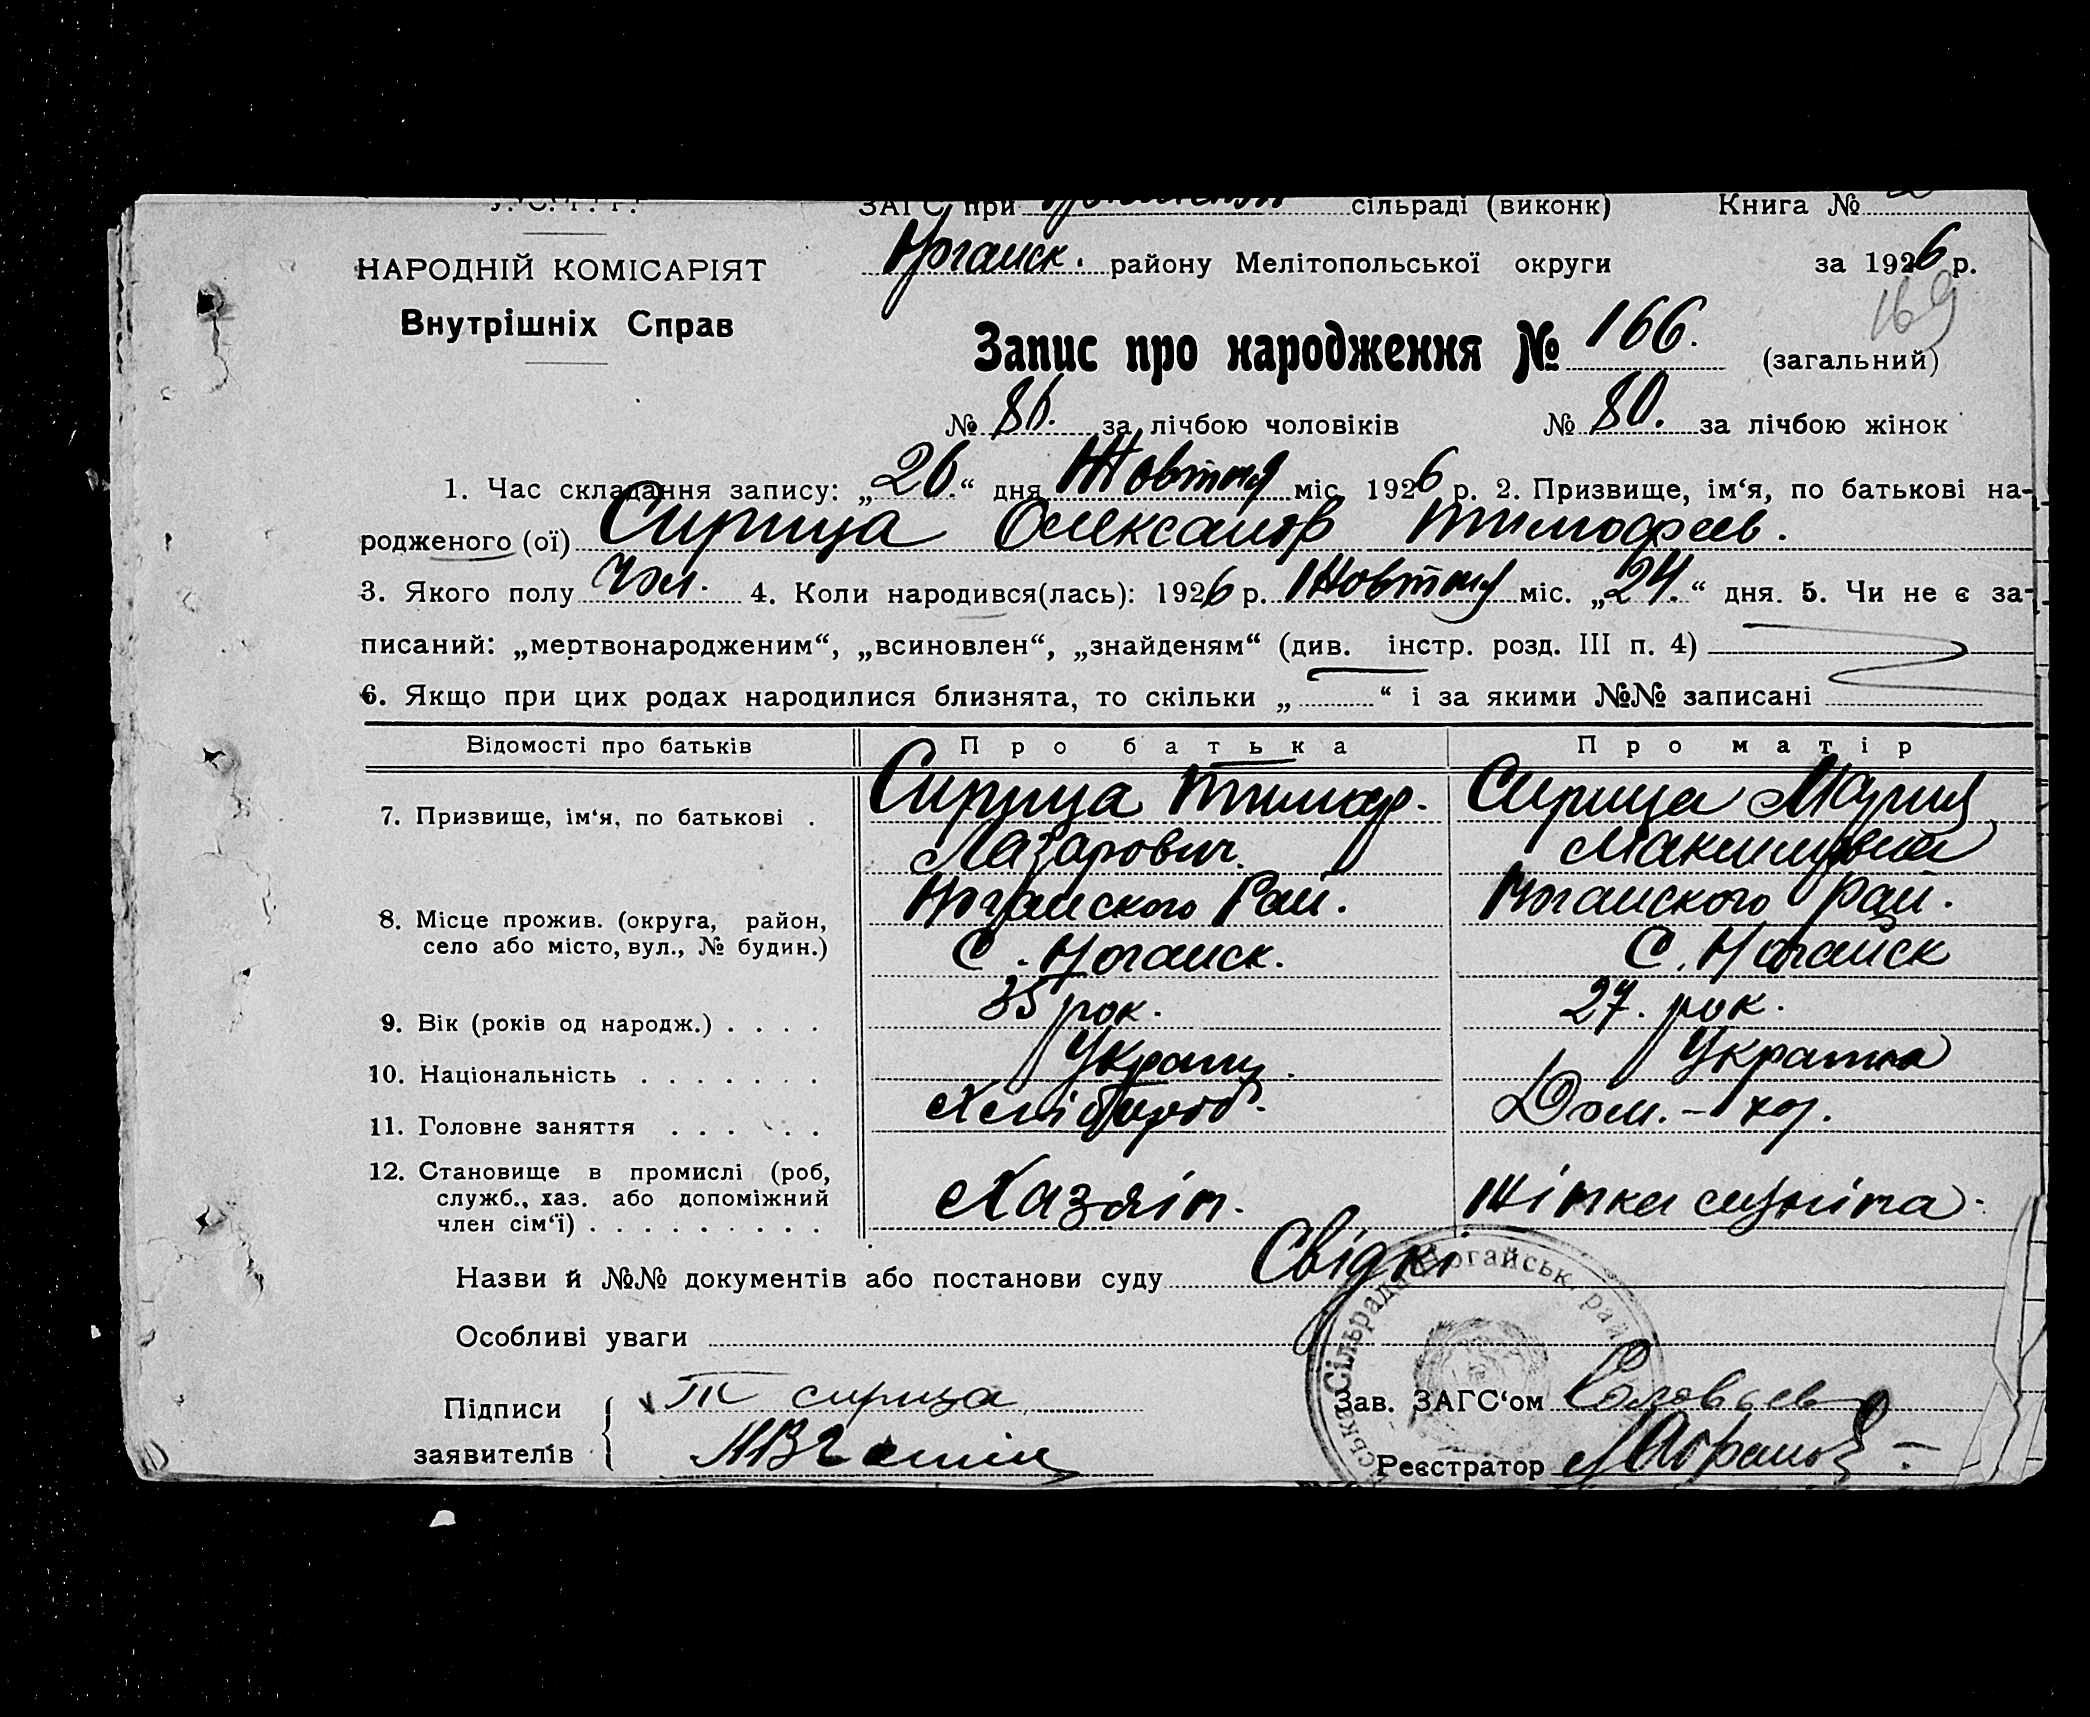 У. С. Р. Р.
ЗАГС при сільраді (виконк) Книга №
НАРОДНІЙ КОМІСАРІЯТ
Внутрішніх Справ
Ногайск. району Мелітопольської округи за 1926 р.
169
Запис про народження № 166. (загальний)
№ 86. за лічбою чоловіків № 80. за лічбою жінок
1. Час складання запису: „26.“ дня Жовтня міс. 1926 р. 2. Призвище, ім‘я, по батькові на-
родженого (ої) Сирица Олександр Тимофеев.
3. Якого полу Чол. 4. Коли народився(лась): 1926 р. Жовтня міс. „24.“ дня. 5. Чи не є за-
писаний: „мертвонародженим“, „всиновлен“, „знайденям“ (див. інстр. розд. III п. 4)
6. Якщо при цих родах народилися близнята, то скільки „ “ і за якими №№ записані
Відомості про батьків Про батька Про матір
7. Призвище, ім‘я, по батькові . Сирица Тимоф. Лазарович. Сирица Мария Максимовна
8. Місце прожив. (округа, район, Ногайского Рай. Ногайского рай.
село або місто, вул., № будин.) С. Ногайск. С. Ногайск
9. Вік (років од народж.) . . . . 35 рок. 27. рок.
10. Національність . . . . . . . Украин. Украинка
11. Головне заняття . . . . . . Хлібороб. Дом.-хоз.
12. Становище в промислі (роб,
служб., хаз. або допоміжний Хазяін. Жінка
член сім‘ї) . . . . . . . . .
Назви й №№ документів або постанови суду Свідкі
Особливі уваги
Сільрада Ногайськ. рай
Підписи Т сирица Зав. ЗАГС‘ом Соловьев
заявителів Реєстратор